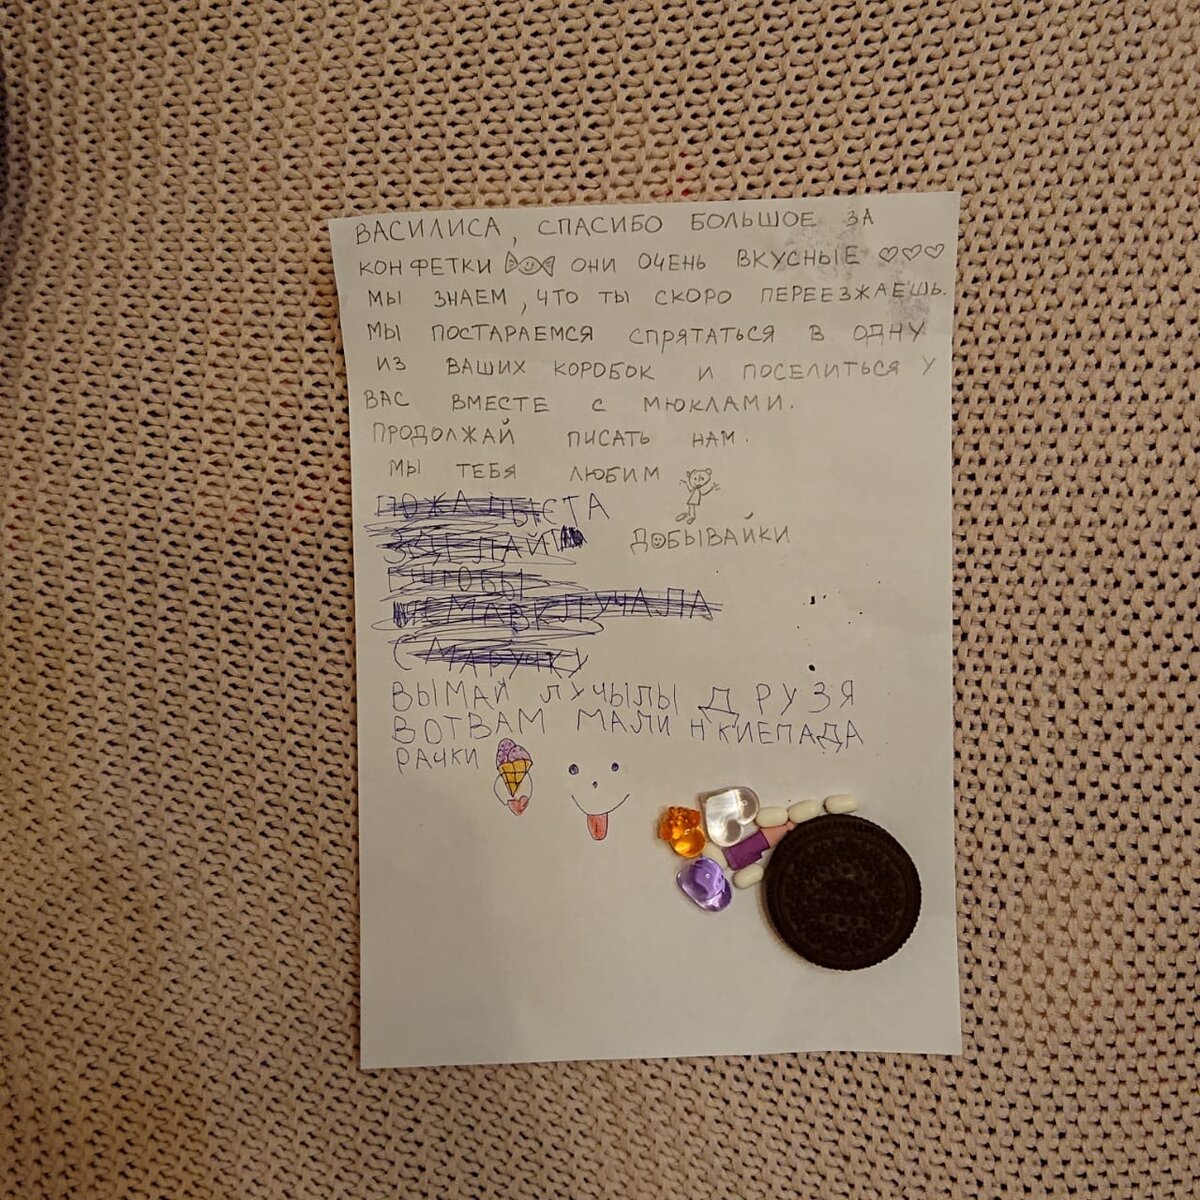 ВАСИЛИСА, СПАСИБО БОЛЬШОЕ ЗА
КОНФЕТКИ ОНИ ОЧЕНЬ ВКУСНЫЕ
МЫ ЗНАЕМ, ЧТО ТЫ СКОРО ПЕРЕЕЗЖАЕШЬ.
МЫ ПОСТАРАЕМСЯ СПРЯТАТЬСЯ В ОДНУ
ИЗ ВАШИХ КОРОБОК И ПОСЕЛИТЬСЯ У
ВАС ВМЕСТЕ С МЮКЛАМИ.
ПРОДОЛЖАЙ ПИСАТЬ НАМ.
МЫ ТЕБЯ ЛЮБИМ
ДОБЫВАЙКИ
ПОЖАЛЫСТА
ШТОБЫ
ВЫМАЙ ЛУЧЫЛЫ ДРУЗЯ
ВОТВАМ МАЛИНКИЕПАДА
РАЧКИ